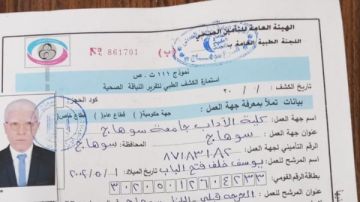 الهيئة العامة للتأمين الصحي
اللجنة الطبية العامة ب
№ 861701 (ب)
نموذج ١١١ ت . ص
استمارة الكشف الطبي لتقرير اللياقة الصحية
تاريخ الكشف / / ٢٠
كود الحجز
بيانات تملأ بمعرفة جهة العمل :
جهة حكومية ( ) قطاع عام ( ) قطاع خاص (
اسم جهة العمل : كلية الآداب جامعة سوهاج
عنوان جهة العمل : سوهاج المحافظة : سوهاج
الرقم التأميني لجهة العمل : ٨٧١٨٣١٨٢
اسم المرشح للعمل : يوسف خلف فتح الباب تاريخ الميلاد : ١ / ٥ / ٢٠٠٢
بطاقة الرقم القومي : ٣٠٢٠٥٠١٢٦٠٤٢٣٣
عنوان المرشح للعمل :